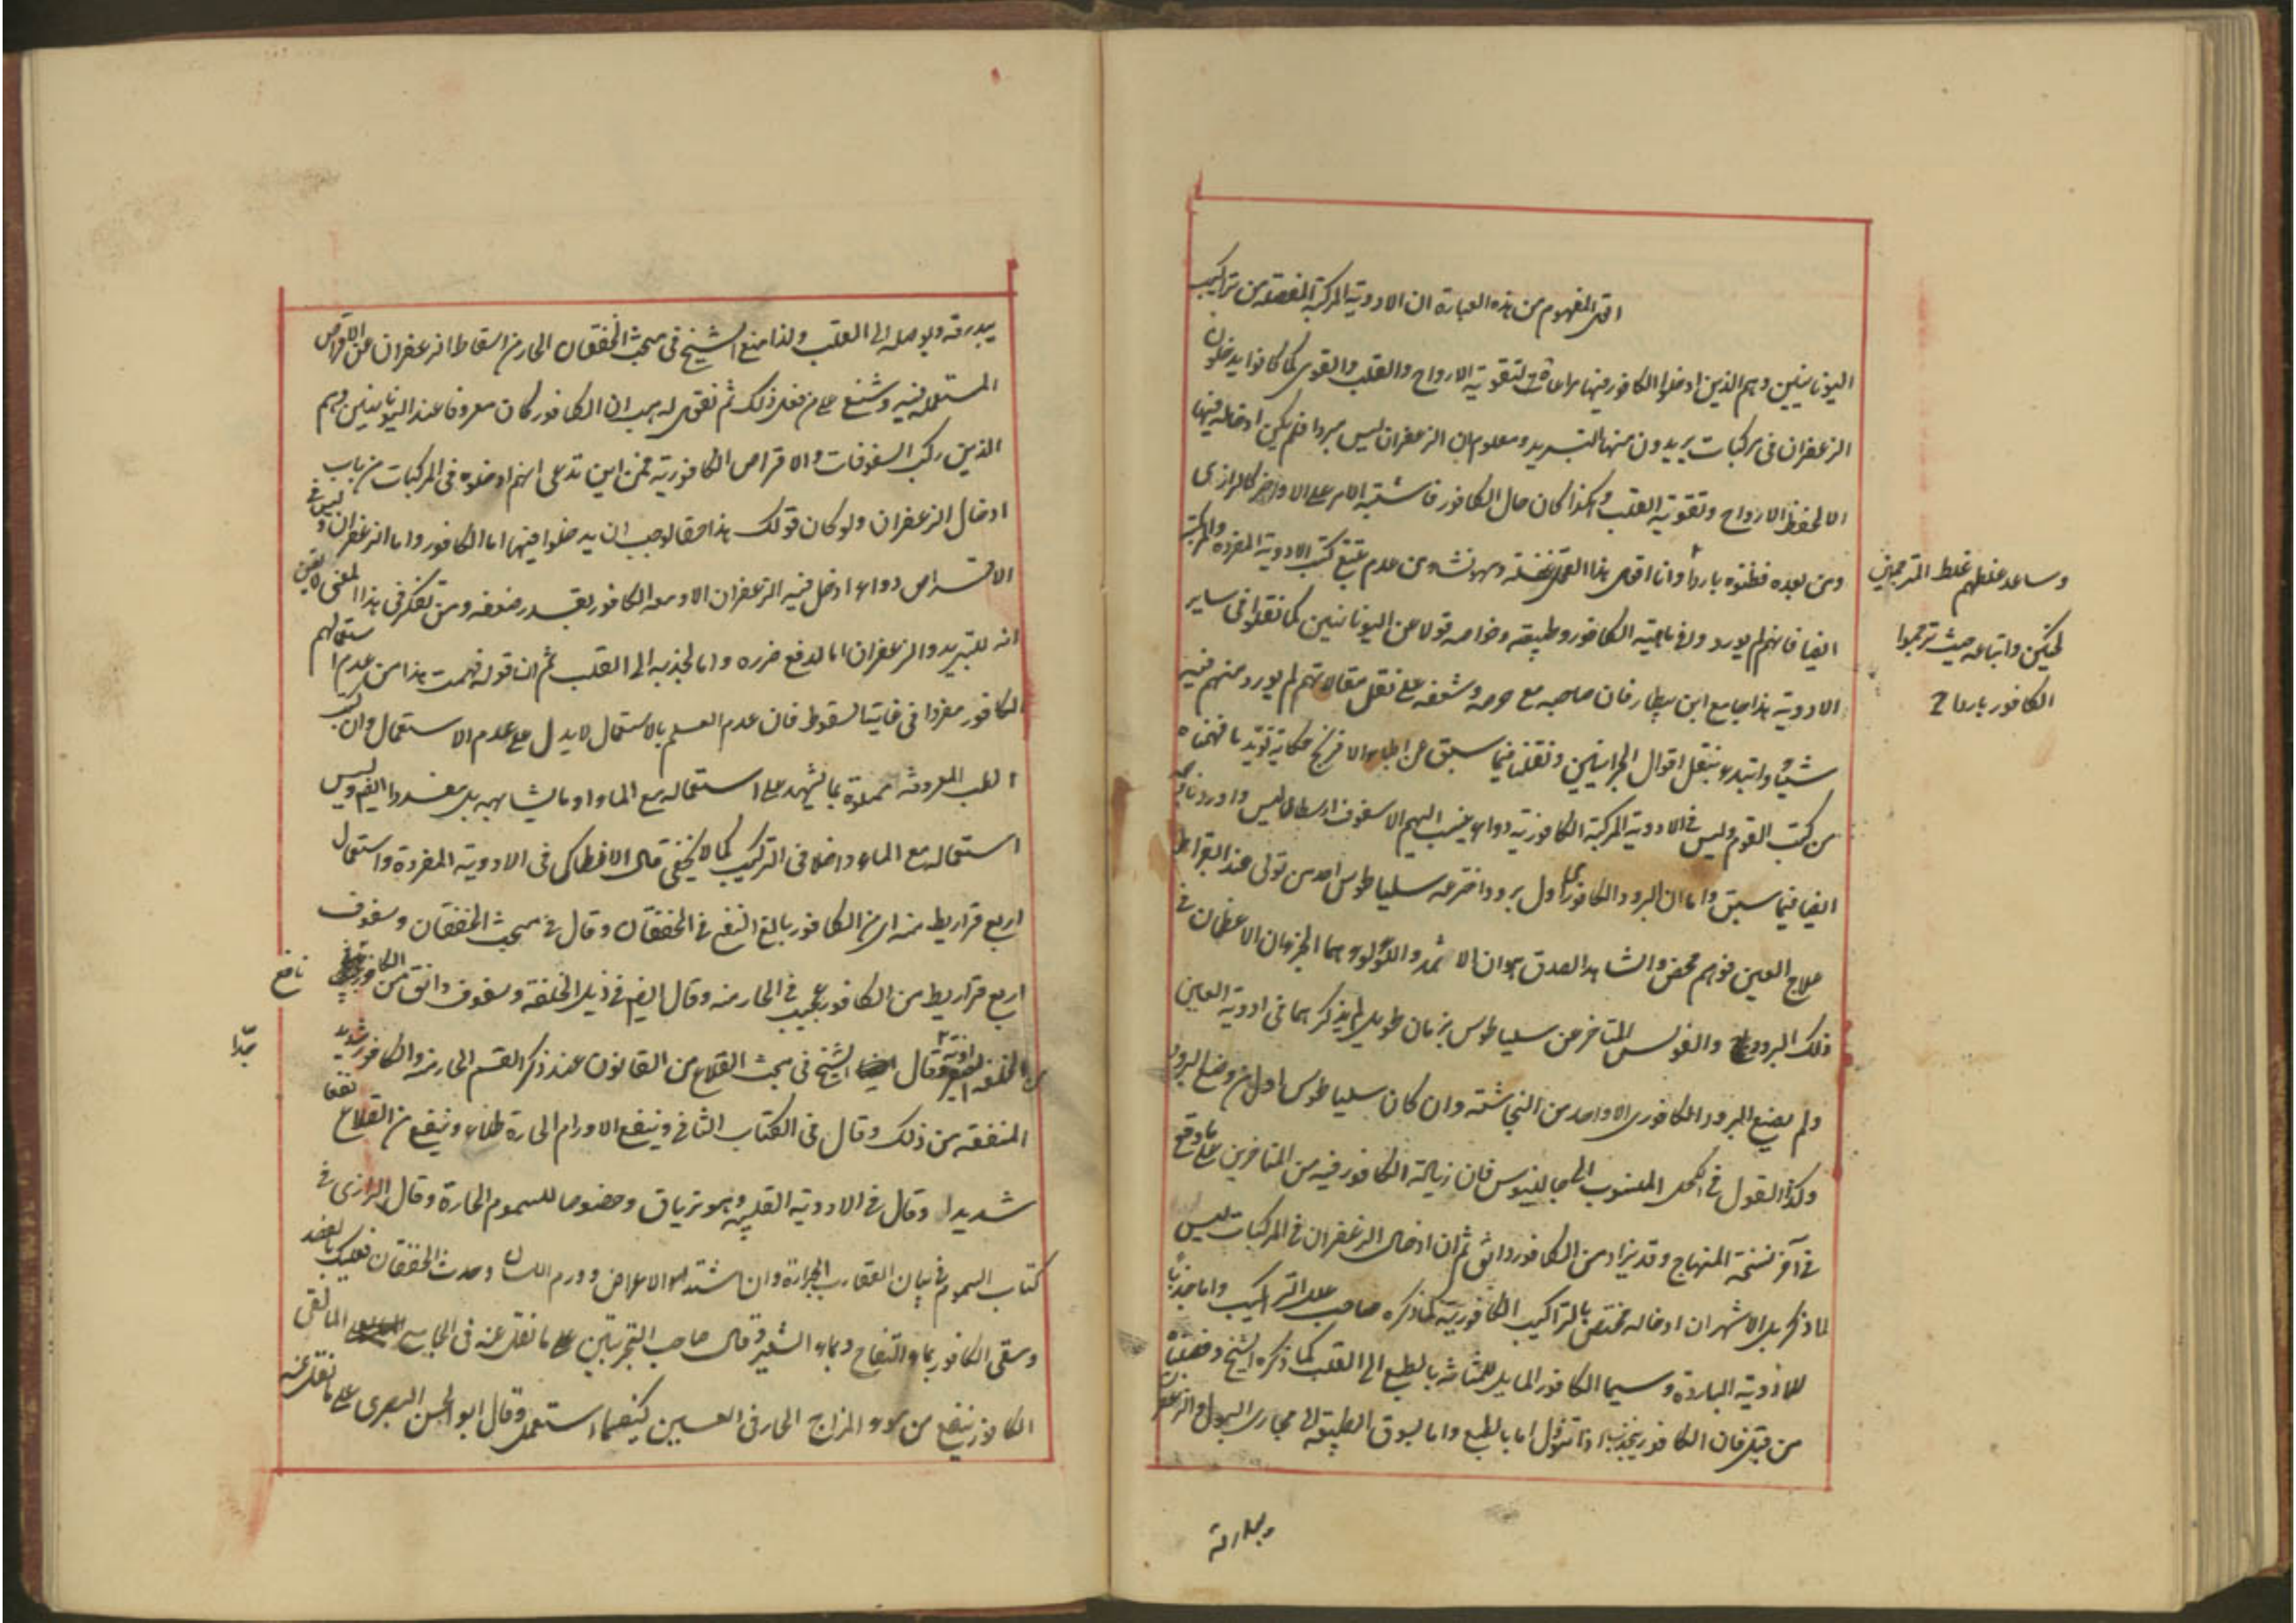 اقول المفهوم من هذه العبارة ان الادوية المركبة المفصلة من تراكيب
اليونانيين وهم الذين ادخلوا الكافور فيها مراعاة لتقوية الارواح والقلب والقوى كما كانوا يدخلون
الزعفران فى مركبات يريدون منها التبريد ومعلوم ان الزعفران ليس مبردا فلم يكن ادخاله فيها
الا لحفظ الارواح وتقوية القلب وهكذا كان حال الكافور فاشتبه الامر على الاواخر كالرازى
ومن بعده فظنوه باردا وانا اقول هذا القول غفلة وسهو نشاء من عدم تتبع كتب الادوية المفردة والمركبة
ايضا فانهم لم يوردوا فى ماهية الكافور وطبيعته وخواصه قولا عن اليونانيين كما نقلوا فى ساير
الادوية هذا جامع ابن بيطار فان صاحبه مع حرصه وشغفه على نقل مقالاتهم لم يورد منهم فيه
شيئا وابتدء بنقل اقوال الجرانيين ونقلنا فيما سبق عن اطباء الافرنج حكاية تؤيد ما فهمناه
من كتب القوم وليس فى الادوية المركبة الكافورية دواء ينسب اليهم الا سفوف ارسطاطاليس واوردنا فيه
ايضا فيما سبق واما ان البرود الكافورى اول برود اخترعه سلياطوس احد من تولى عند البقراط
علاج العين فوهم محض والشاهد العدل هو ان الاثمد واللؤلوء هما الجزءان الاعظمان فى
ذلك البرود والفولس المتاخر عن سلياطوس بزمان طويل لم يذكرهما فى ادوية العين
ولم يصنع البرود الكافورى الا واحد من النجاشقة وان كان سلياطوس اول من وضع البرود
وكذا القول فى الكحل المنسوب الى جالينوس فان زيادة الكافور فيه من المتاخرين على ما وقع
فى آخر نسخة المنهاج وقد يزاد من الكافور دانق ثم ان ادخال الزعفران فى المركبات ليس
لما ذكر بل الاشهر ان ادخاله مختص بالتراكيب الكافورية كما ذكره صاحب علل التراكيب واما جذبا
للادوية الباردة وسيما الكافور المايل للمثانة بالطبع الى القلب كما ذكره الشيخ وفصلناه
من قبل فان الكافور ينجذب اذا تنوول اما بالطبع واما لسوق الطبيعة الى مجارى البول والزعفران
وساعد غلطهم غلط المترجمين
كحنين واتباعه حيث ترجموا
الكافور باردا
يبدرقه ويوصله الى القلب ولذا منع الشيخ فى مبحث الخفقان الحار من اسقاط الزعفران عن الاقراص
المستعملة فيه وشنع على من فعل ذلك ثم نقول له هب ان الكافور كان معروفا عند اليونانيين وهم
الذين ركبوا السفوفات والاقراص الكافورية فمن اين تدعى انهم ادخلوه فى المركبات من باب
ادخال الزعفران ولو كان قولك هذا حقا لوجب ان يدخلوا فيها اما الكافور واما الزعفران وليس فى
الاقراص دواء ادخل فيه الزعفران الا ومعه الكافور بقدر ضعفه ومن تفكر فى هذا المعنى لايقن
انه للتبريد والزعفران اما لدفع ضرره واما لجذبه الى القلب ثم ان قوله فهمت هذا من عدم استعمالهم
الكافور مفردا فى غاية السقوط فان عدم العلم بالاستعمال لا يدل على عدم الاستعمال وان كتب
الطب المعروفة مملوة بما يشهد على استعماله مع الماء او ما يشابهه بل مفردا ايضا وليس
استعماله مع الماء داخلا فى التركيب كما لا يخفى قال الانطاكى فى الادوية المفردة واستعمال
اربع قراريط منه اى من الكافور بالغ النفع فى الخفقان وقال فى مبحث الخفقان وسفوف
اربع قراريط من الكافور عجيب فى الحار منه وقال ايضا فى ذيل الخلفة وسفوف دانق من الكافور نافع جدا
وقال الشيخ فى مبحث القلاع من القانون عند ذكر القسم الحار منه والكافور شديد
المنفعة من ذلك وقال فى الكتاب الثانى وينفع الاورام الحارة طلاء وينفع من القلاع نفعا
شديدا وقال فى الادوية القلبية وهو ترياق وخصوصا للسموم الحارة وقال الرازى فى
كتاب السموم فى بيان العقارب الجرارة وان اشتد الاعراض وورم اللسان وحدث الخفقان فعليك بالفصد
وسقى الكافور بماء التفاح وبماء الشعير وقال صاحب التجربتين على ما نقل عنه فى الجامع المالقى
الكافور ينفع من سوء المزاج الحار فى العين كيفما استعمل وقال ابو الحسن البصرى على ما نقل عنه